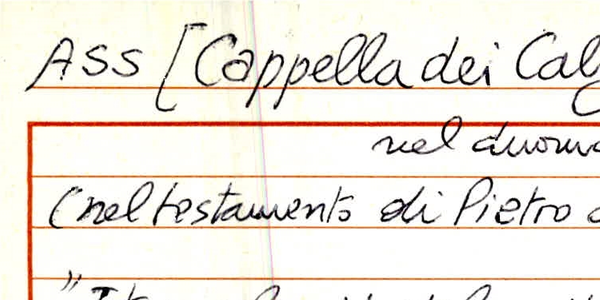 ASS [Cappella dei Cal
nel duomo
(nel testamento di Pietro
"It